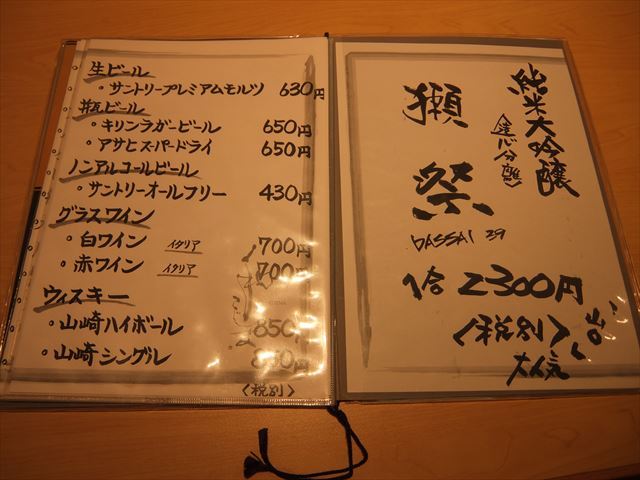 生ビール
・サントリープレミアムモルツ 630円
瓶ビール
・キリンラガービール 650円
・アサヒスーパードライ 650円
ノンアルコールビール
・サントリーオールフリー 430円
グラスワイン
・白ワイン イタリア 700円
・赤ワイン イタリア 700円
ウィスキー
・山崎ハイボール 850円
・山崎シングル
〈税別〉
純米大吟醸
〈遠心分離〉
獺祭
DASSAI 39
1合 2300円
〈税別〉
大人気